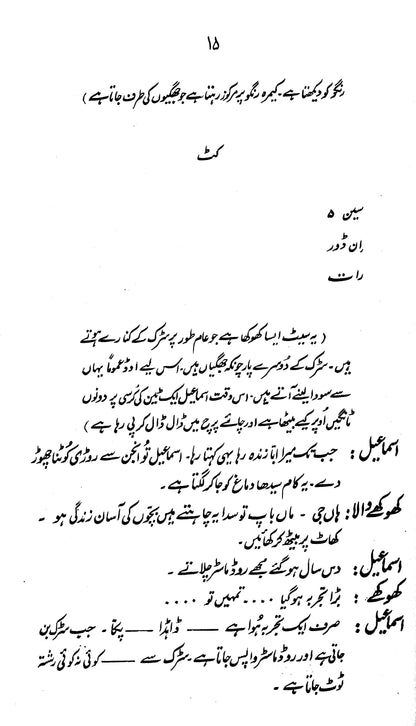 ۱۵
رنگو کو دیکھتا ہے۔ کیمرہ رنگو پر مرکوز رہتا ہے جو جھگیوں کی طرف جاتا ہے )
کٹ
سین ۵
اِن ڈور
رات
( یہ سیٹ ایسا کھوکھا ہے جو عام طور پر سڑک کے کنارے ہوتے
ہیں۔ سڑک کے دوسرے پار چونکہ جھگیاں ہیں۔ اس لیے اوڈ عموماً یہاں
سے سودا لینے آتے ہیں۔ اس وقت اسماعیل ایک ٹین کی کرسی پر دونوں
ٹانگیں اُوپر کیے بیٹھا ہے اور چائے پرچ میں ڈال ڈال کر پی رہا ہے )
اسماعیل : جب تک میرا ابا زندہ رہا یہی کہتا رہا۔ اسماعیل تُو انجن سے روڑی کُوٹنا چھوڑ
دے۔ یہ کام سیدھا دماغ کو جا کر لگتا ہے۔
کھوکھے والا : ہاں جی ۔ ماں باپ تو سدا یہ چاہتے ہیں بچّوں کی آسان زندگی ہو ۔
کھاٹ پر بیٹھ کر کھائیں۔
اسماعیل : دس سال ہو گئے مجھے روڈ ماسٹر چلاتے ۔
کھوکھے : بڑا تجربہ ہو گیا .... تمہیں تو ....
اسماعیل : صرف ایک تجربہ ہُوا ہے —— ڈاہڈا —— پکّا ۔ جب سڑک بن
جاتی ہے اور روڈ ماسٹر واپس جاتا ہے سڑک سے —— کوئی نہ کوئی رشتہ
ٹوٹ جاتا ہے ۔